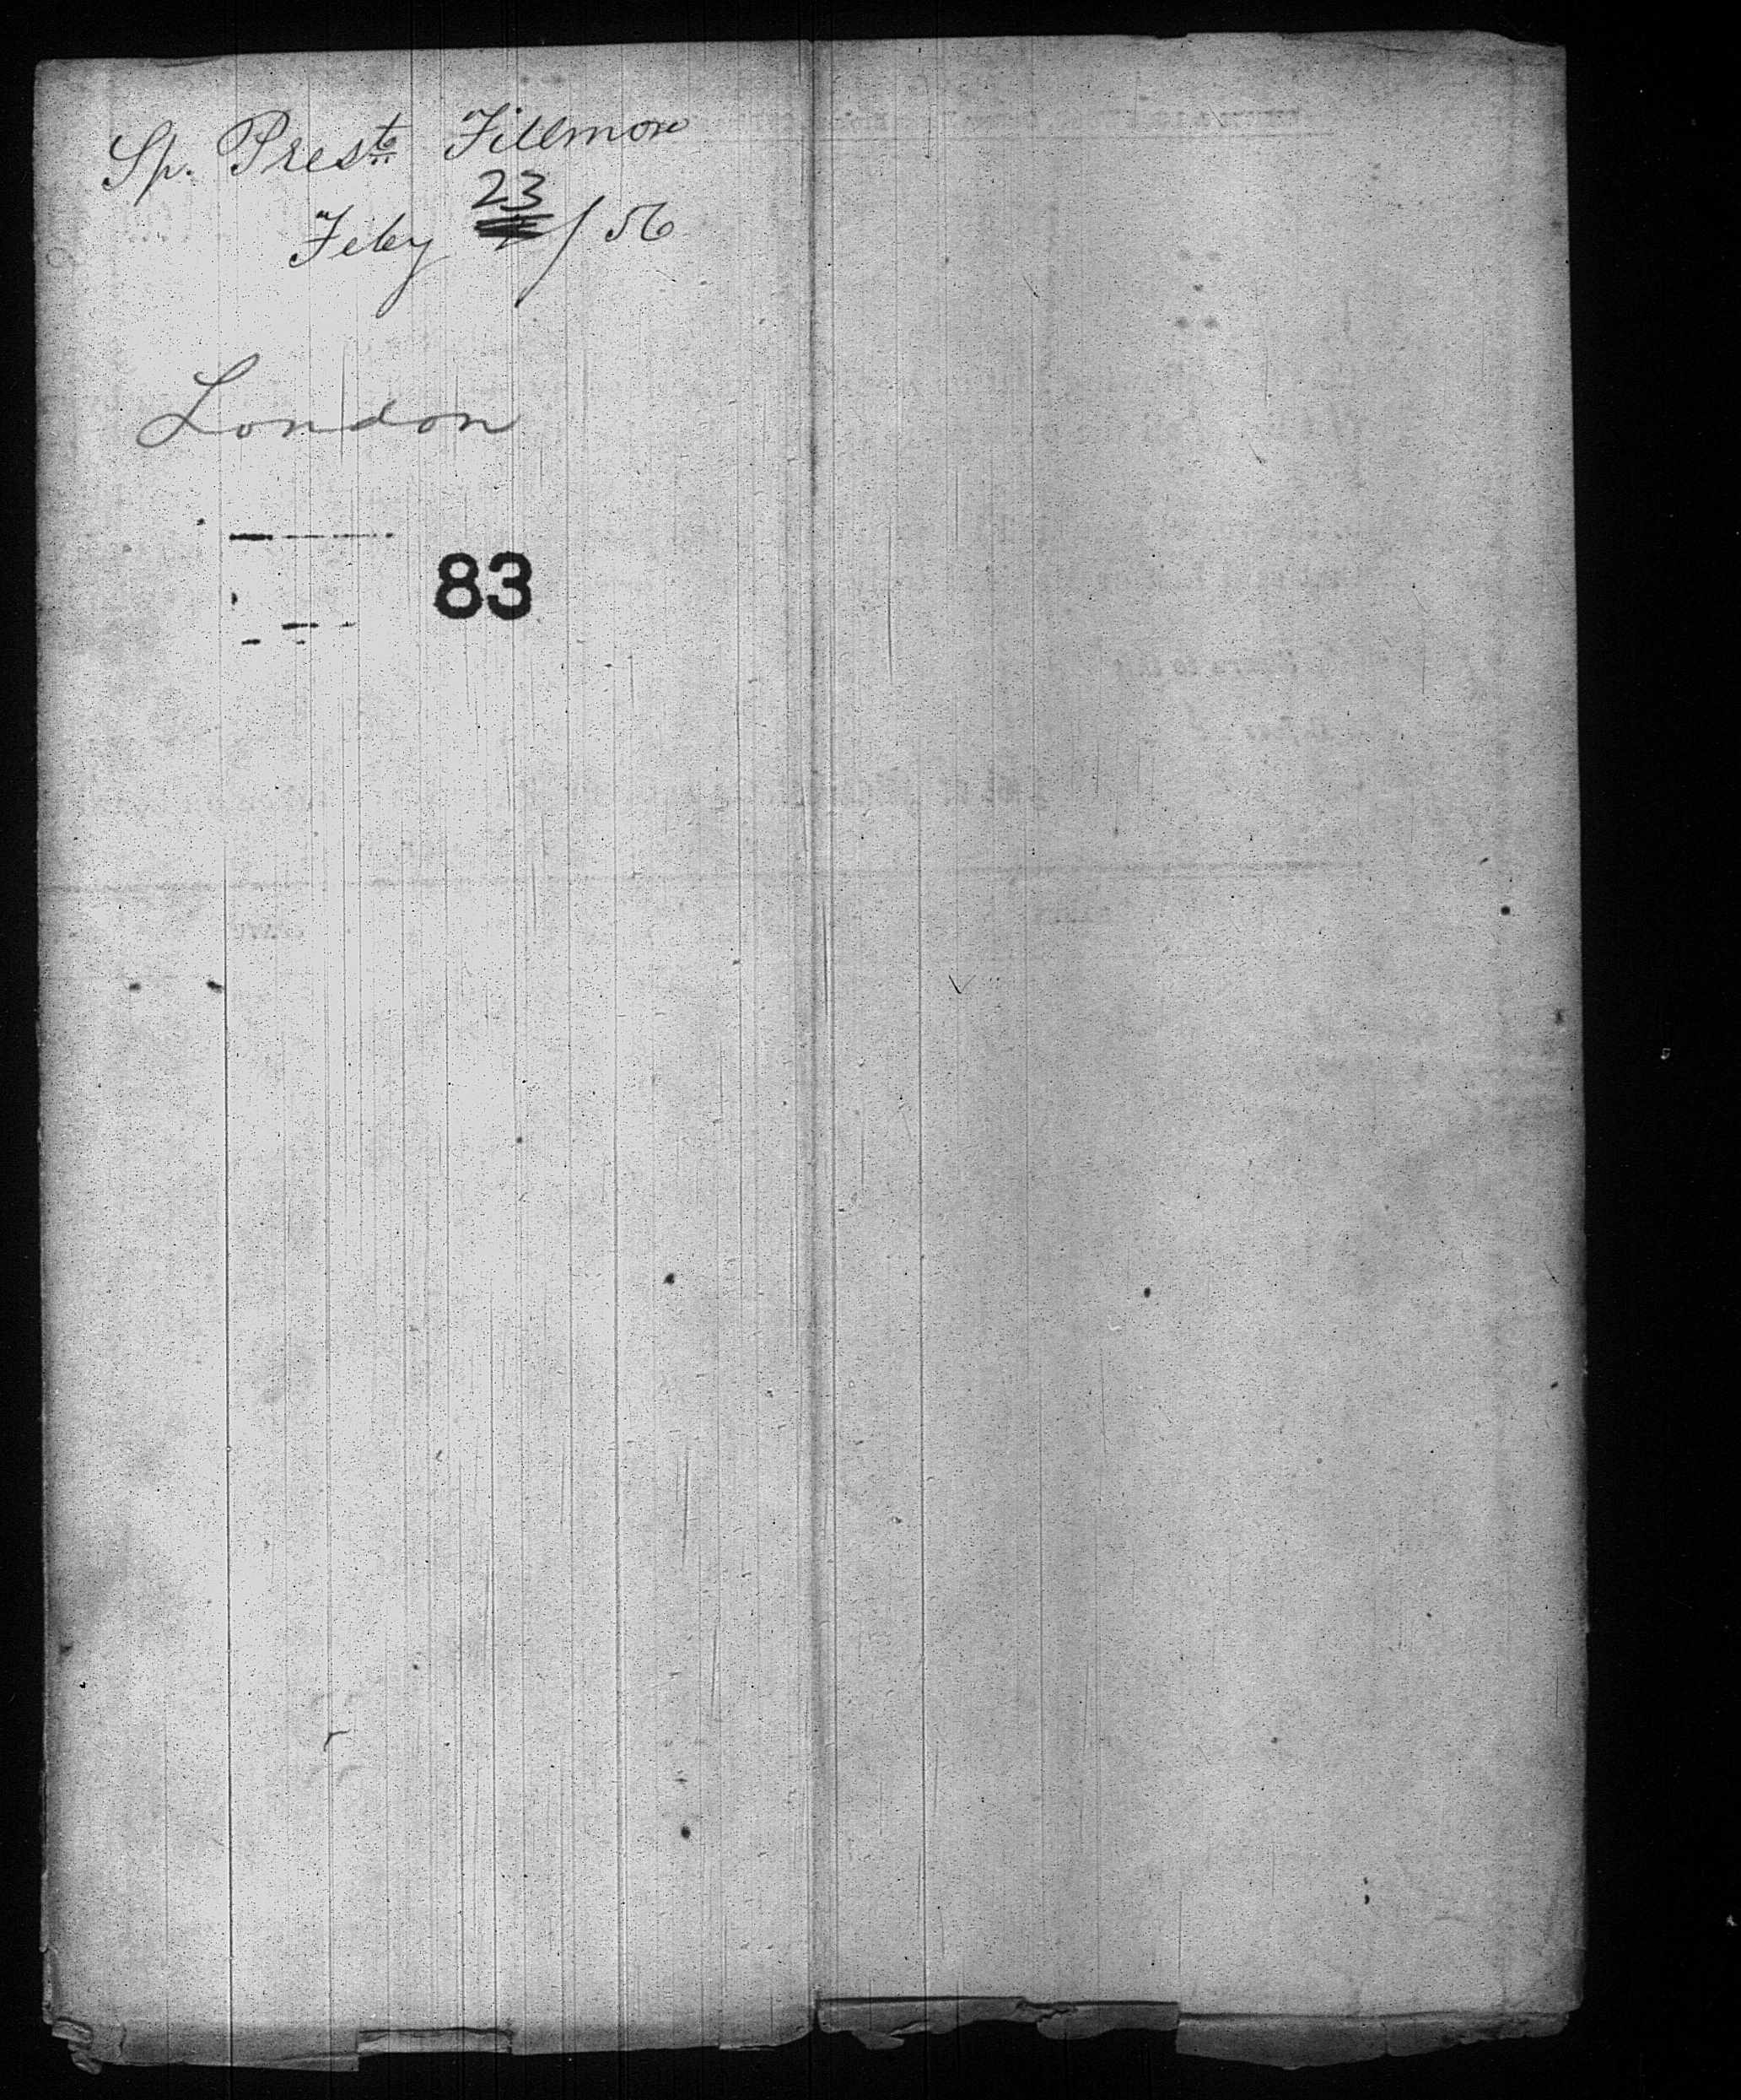 Sp. Prest Fillmore
Feby 23/56
London
83